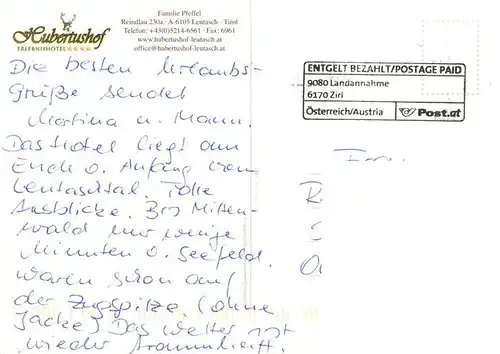 Hubertushof
ERLEBNISHOTEL
Familie Pfeffel
Reindlau 230a · A-6105 Leutasch · Tirol
Telefon: +43(0)5214-6561 · Fax: 6961
www.hubertushof-leutasch.at
office@hubertushof-leutasch.at
Die besten Urlaubs-
Grüße sendet
Martina u. Mann.
Das Hotel liegt am
Ende o. Anfang vom
Leutaschtal. Tolle
Ausblicke. Bis Mitten-
wald nur wenige
Minuten o. Seefeld.
waren schon auf
der Zugspitze (ohne
Jacke) Das Wetter ist
wieder traumhaft.
ENTGELT BEZAHLT/POSTAGE PAID
9080 Landannahme
6170 Zirl
Österreich/Austria Post.at